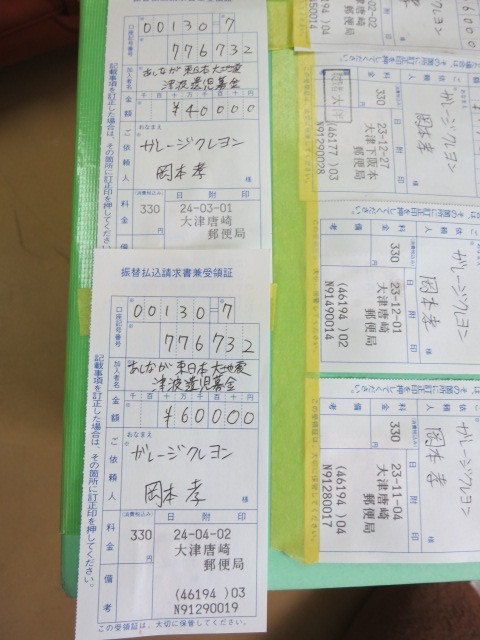 振替払込請求書兼受領証
口座記号番号
00130 7
776732
加入者名
あしなが東日本大地震
津波遺児募金
金額
千 百 十 万 千 百 十 円
¥40000
ご依頼人
おなまえ
ガレージクレヨン
岡本孝
様
料金
(消費税込み)
330
円
日附印
24-03-01
大津唐崎
郵便局
記載事項を訂正した場合は、その箇所に訂正印を押してください。
振替払込請求書兼受領証
口座記号番号
00130 7
776732
加入者名
あしなが東日本大地震
津波遺児募金
金額
千 百 十 万 千 百 十 円
¥60000
ご依頼人
おなまえ
ガレージクレヨン
岡本孝
様
料金
(消費税込み)
330
円
日附印
24-04-02
大津唐崎
郵便局
備考
(46194)03
N91290019
この受領証は、大切に保管してください。
記載事項を訂正した場合は、その箇所に訂正印を押してください。
ガレージクレヨン
岡本孝
様
料金
330
円
日附印
23-12-27
大津下阪本
郵便局
備考
(46177)03
N91290028
ガレージクレヨン
岡本孝
様
料金
330
円
日附印
23-12-01
大津唐崎
郵便局
備考
(46194)02
N91490014
ガレージクレヨン
岡本孝
様
料金
330
円
日附印
23-11-04
大津唐崎
郵便局
備考
(46194)04
N91280017